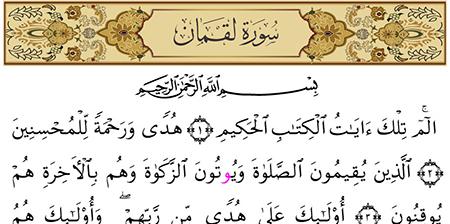 سُورَةُ لُقْمَانَ
بِسْمِ ٱللَّهِ ٱلرَّحْمَٰنِ ٱلرَّحِيمِ
الٓمٓ تِلْكَ ءَايَٰتُ ٱلْكِتَٰبِ ٱلْحَكِيمِ ﴿١﴾ هُدًى وَرَحْمَةً لِّلْمُحْسِنِينَ
﴿٢﴾ ٱلَّذِينَ يُقِيمُونَ ٱلصَّلَوٰةَ وَيُوتُونَ ٱلزَّكَوٰةَ وَهُم بِٱلْأَخِرَةِ هُمْ
يُوقِنُونَ ﴿٣﴾ أُوْلَٰٓئِكَ عَلَىٰ هُدًى مِّن رَّبِّهِمْ ۖ وَأُوْلَٰٓئِكَ هُمُ